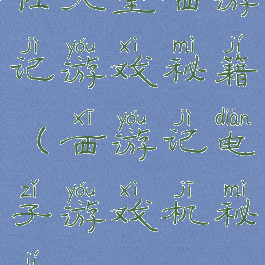 西游
jì yóu xì mì jí
记游戏秘籍
xī yóu jì diàn
(西游记电
zǐ yóu xì jī mì
子游戏机秘
jí